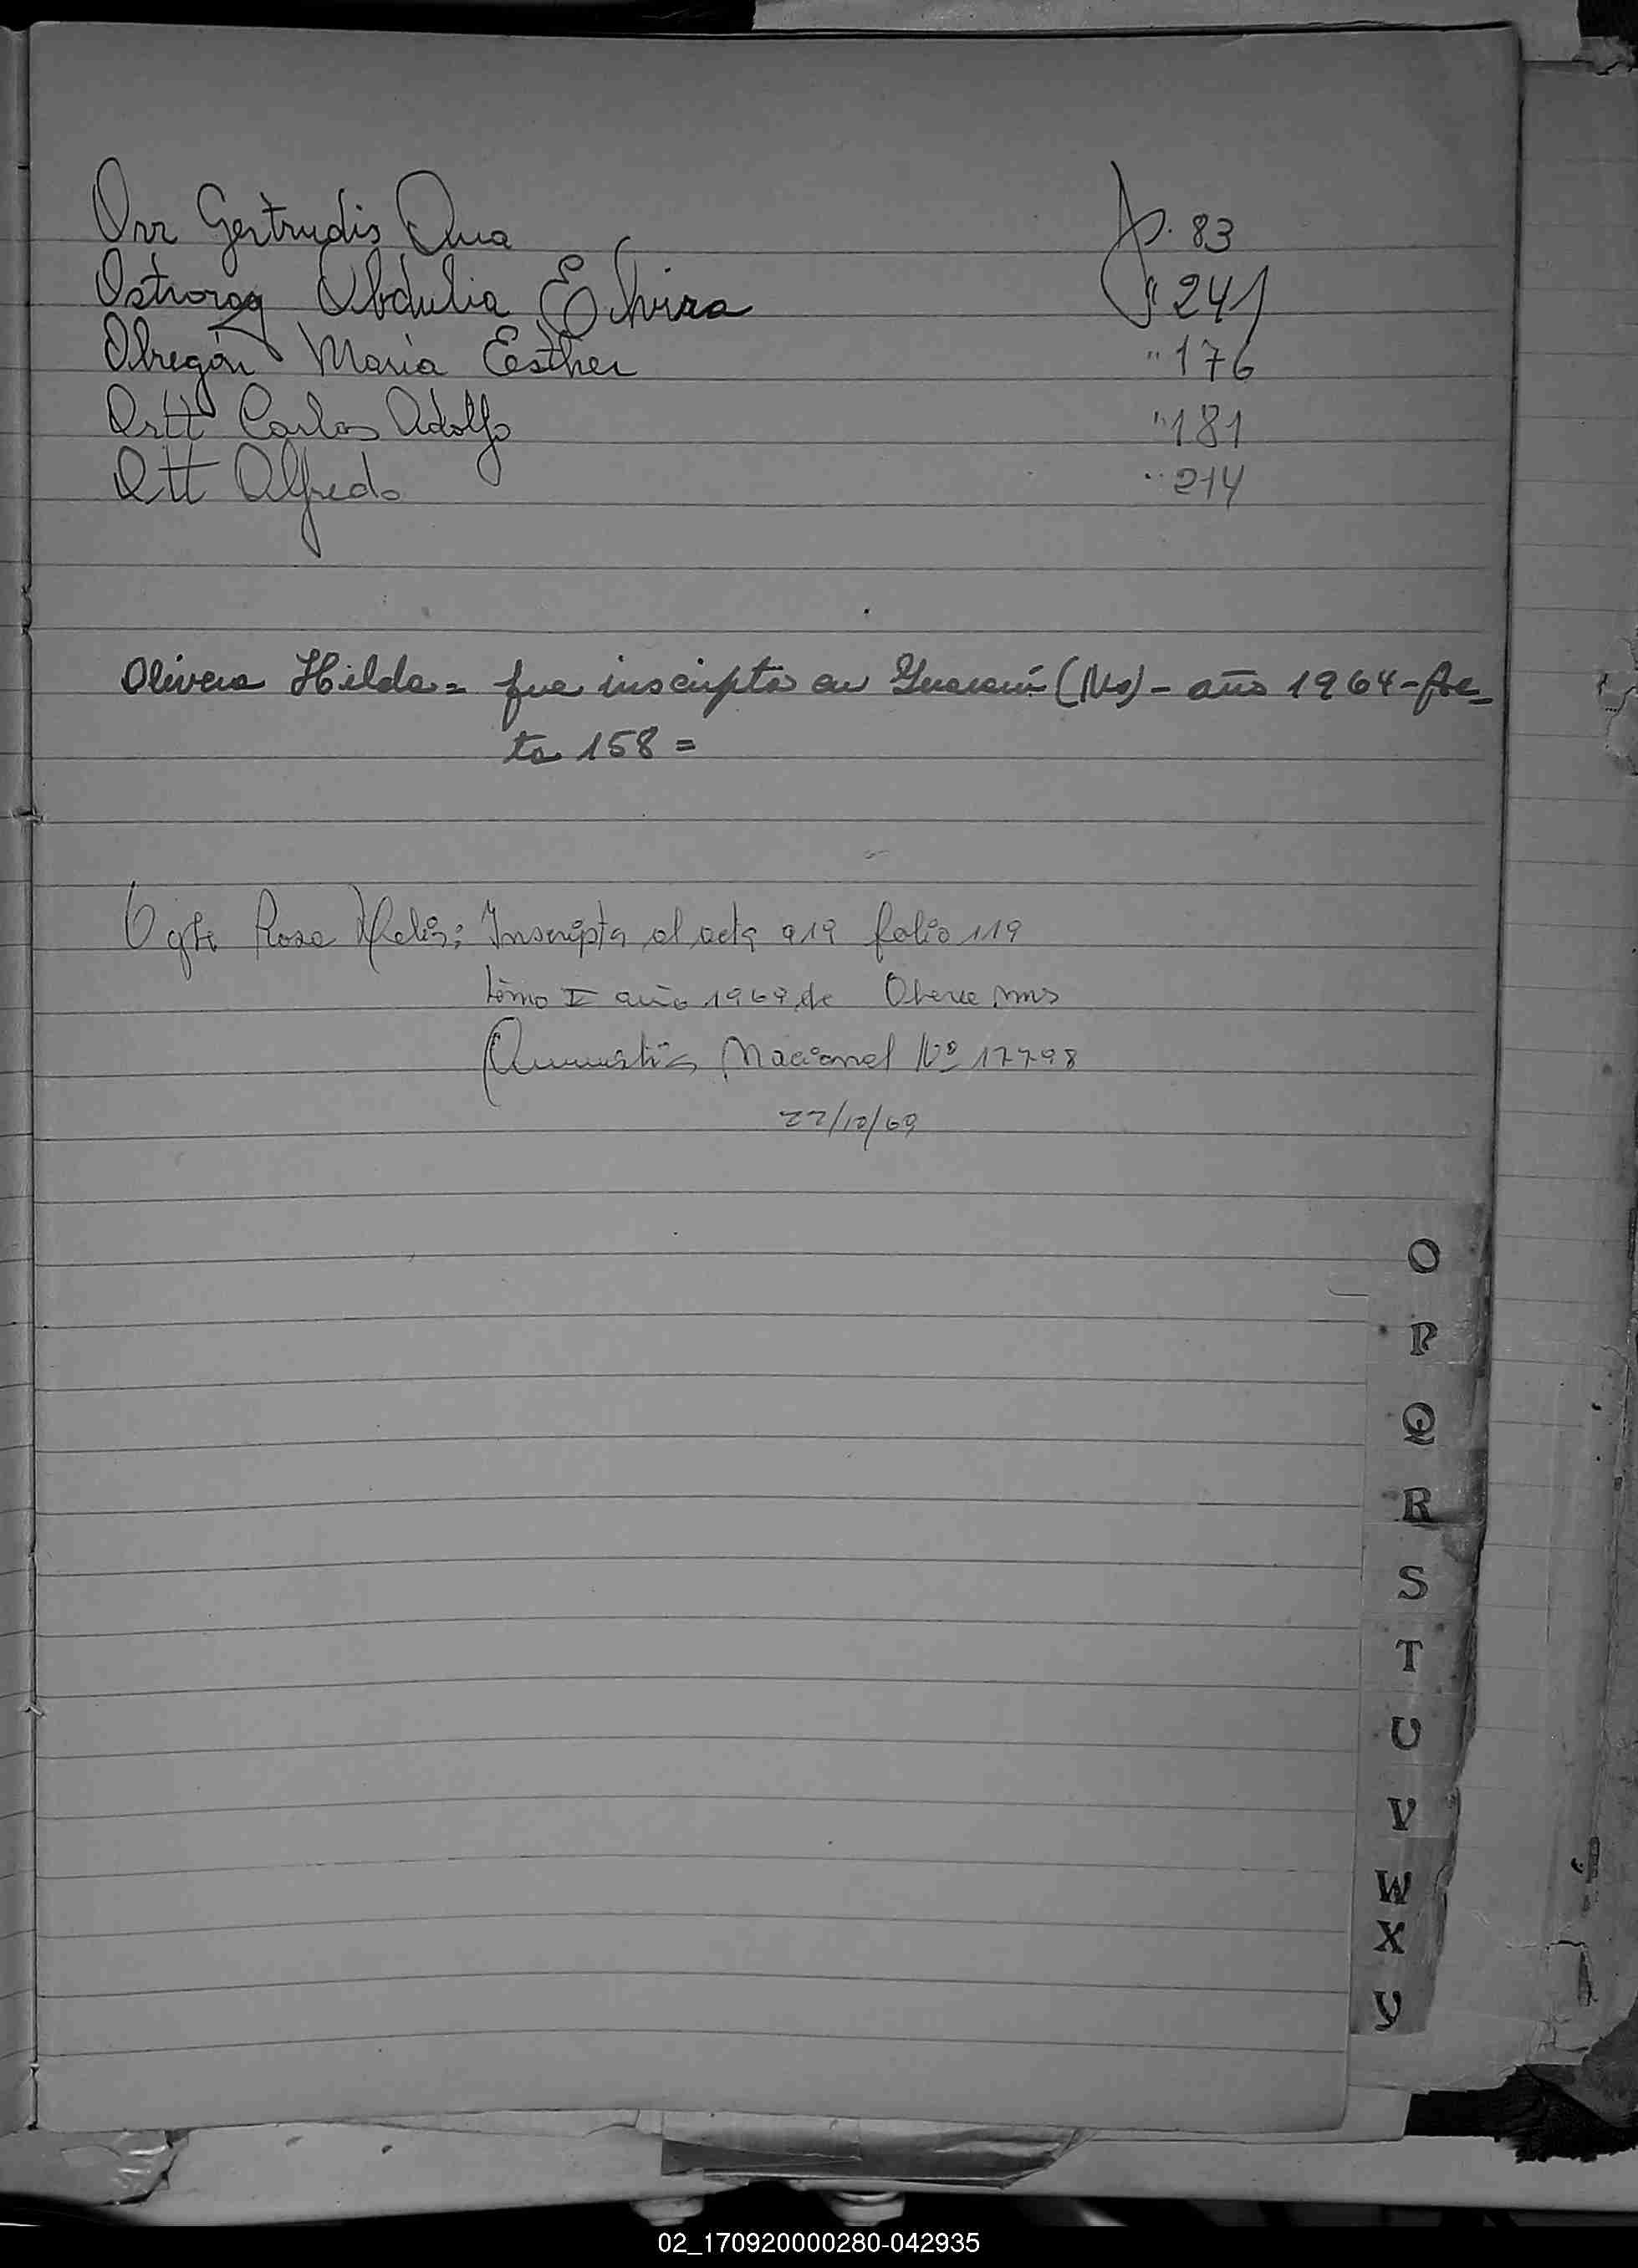 Orr Gertrudis Ana f. 83
Ostrorog Obdulia Elvira " 241
Obregón Maria Esther " 176
Ortt Carlos Adolfo " 181
Ott Alfredo " 214
Olivera Hilda = fue inscripta en Guaraní (Ms) - año 1964 - Ac-
ta 158 =
Rosa Inscripta al acta 919 folio 119
tomo I año 1969 de Obera mns
Amnistia Nacional Nº 17798
22/10/69
O
P
Q
R
S
T
U
V
W
X
Y
02_170920000280-042935